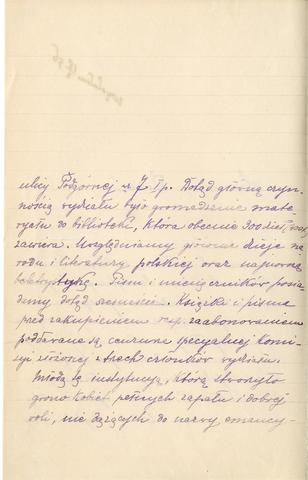 ulicy Podgórnej nr 7 I p. Dotąd główną czyn-
nością wydziału było gromadzenie mate-
ryału do biblioteki, która obecnie 300 dzieł
zawiera. Uwzględniamy głównie dzieje na-
rodu i literaturę polskiej oraz najnowszą
beletrystykę. Pism i miesięczników posia-
damy dotąd
Książki i pisma
przed zakupieniem resp. zaabonowaniem
poddawane są cenzurze specyalnej komi-
syi złożonej z trzech członków wydziału.
Młodą tę instytucyą, którą stworzyło
grono kobiet pełnych zapału i dobrej
woli, nie dążących do nazwy emancy-